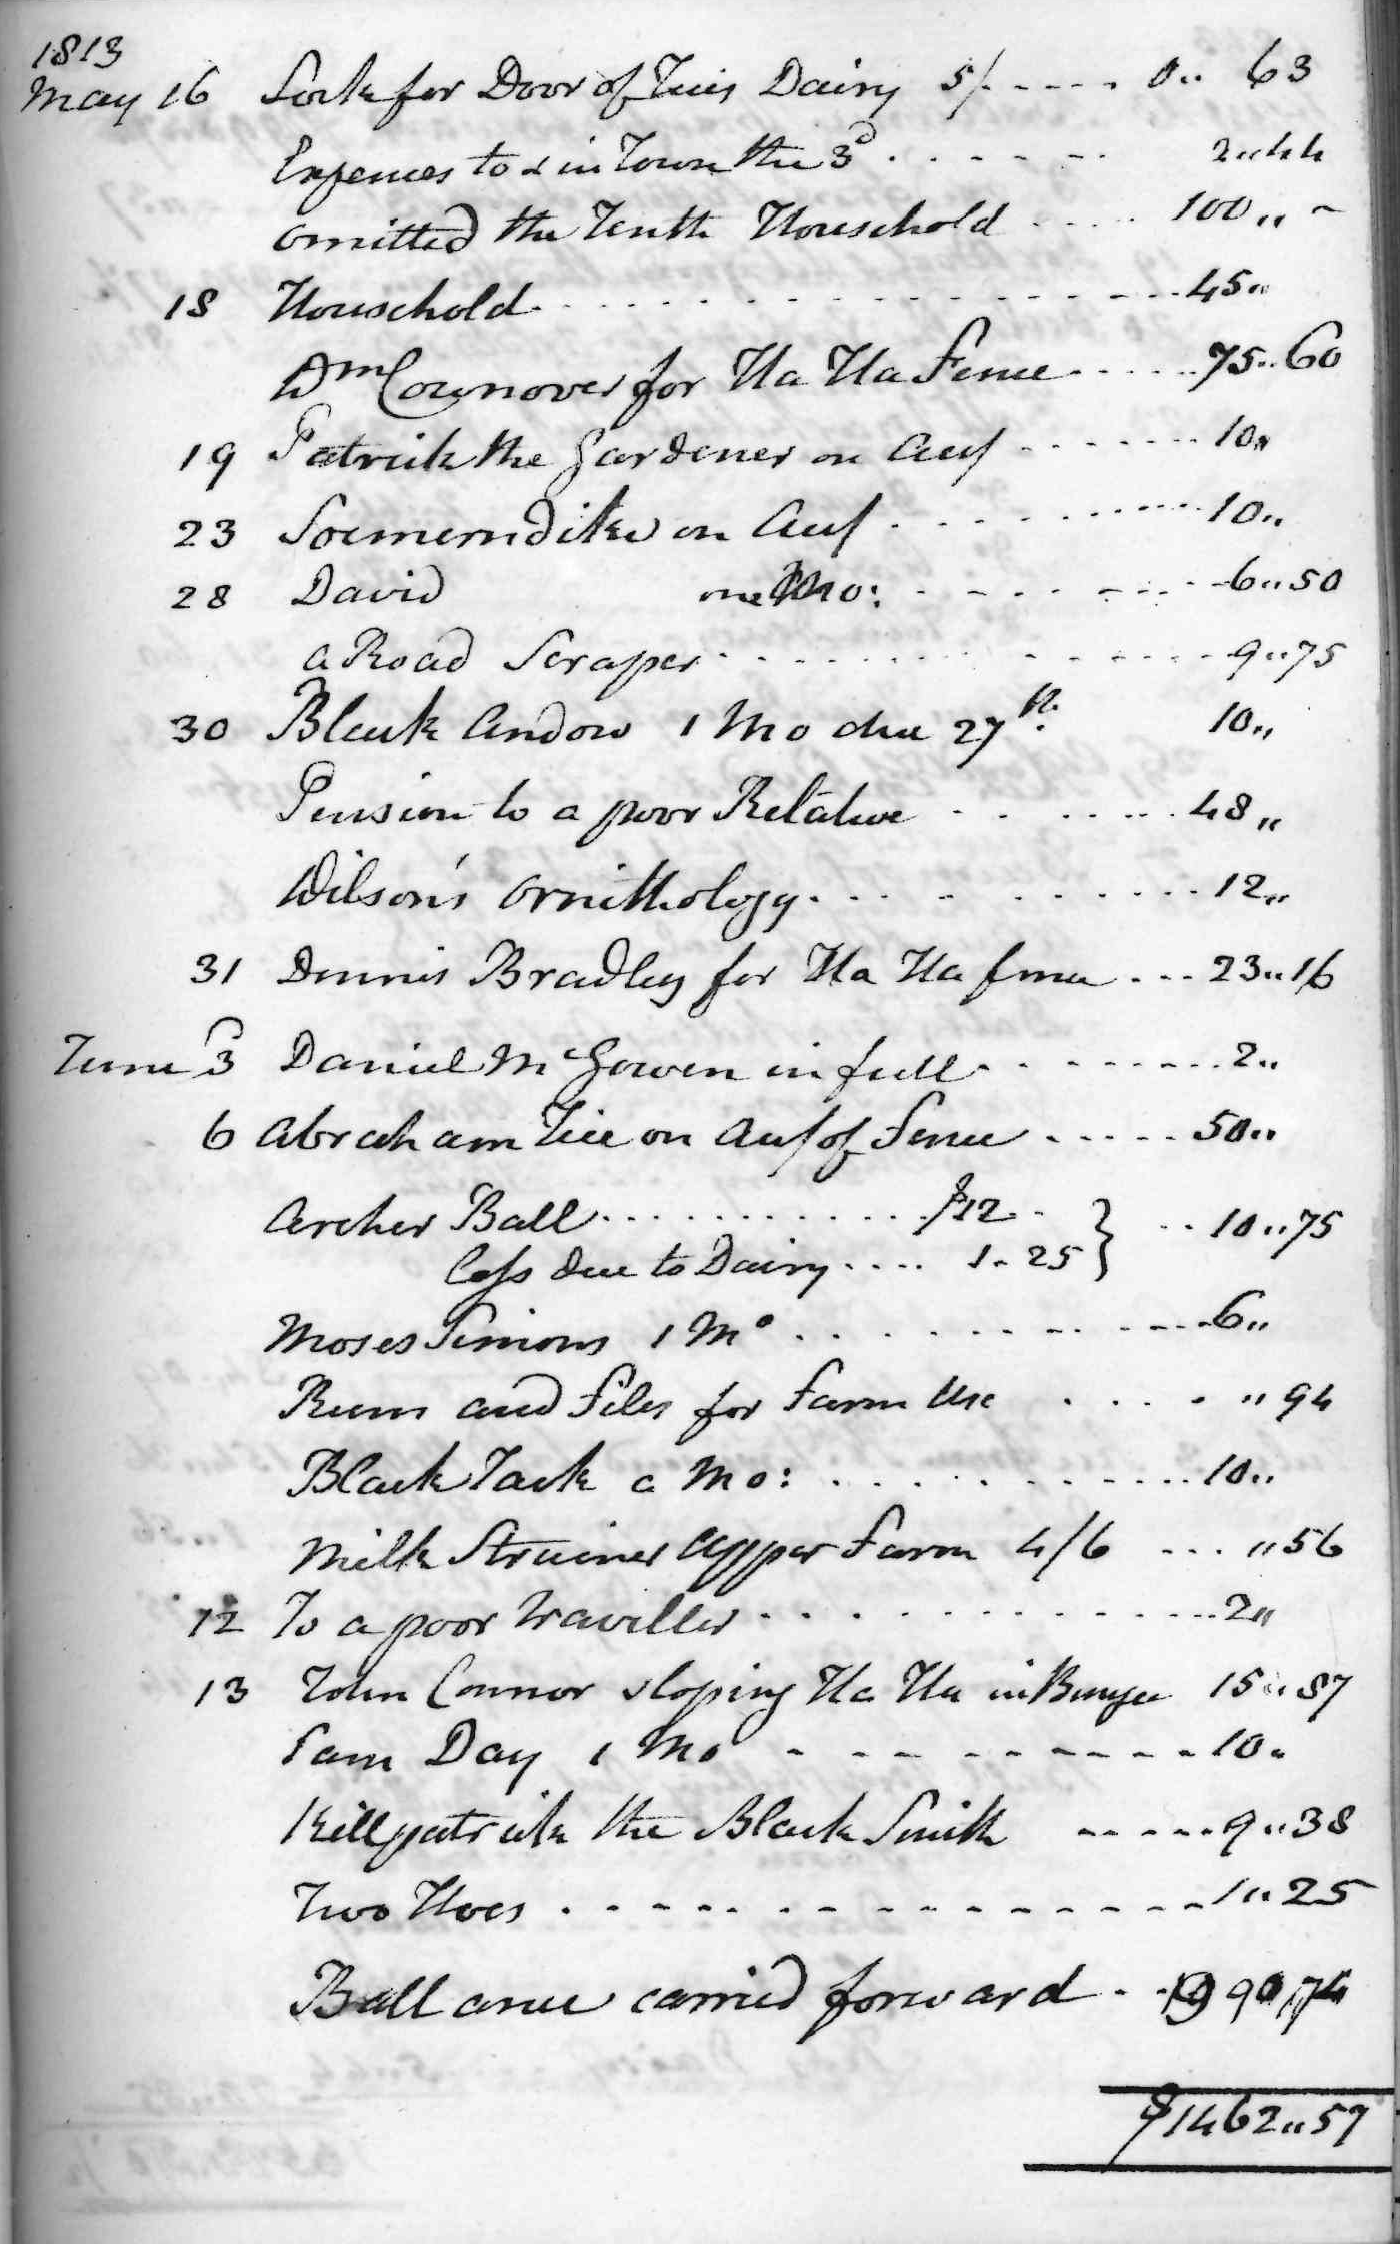 1813
May 16 Lock for Door of Tices Dairy 5/. 0.. 63
Expences to & in Town the 3d 2..44
omitted the Tenth Household 100.. -
18 Household 45..
Wm Counover for Ha Ha Fence 75..60
19 Patrick the Gardener on Acct 10..
23 Soemerndike on Acct 10..
28 David one Mo: 6..50
a Road Scraper 9..75
30 Black Andow 1 Mo due 27th. 10..
Pension to a poor Relative 48..
Wilson's Ornithology 12..
31 Dennis Bradley for Ha Ha fence 23..16
June 3 Daniel McGowen in full 2..
6 Abraham Tice on Acct of Fence 50..
Archer Ball $12 } 10..75
Less due to Dairy 1.25 }
Moses Simons 1 Mo 6..
Rum and Files for Farm Use ..94
Black Jack a Mo: 10..
Milk Strainer Upper Farm 4/6 ..56
12 To a poor traveller 2..
13 John Connor sloping Ha Ha in 15..87
Sam Day 1 Mo 10..
Killpatrick the Black Smith 9..38
Two Hoes 1..25
Ballance carried forward 990 74
$1462..57